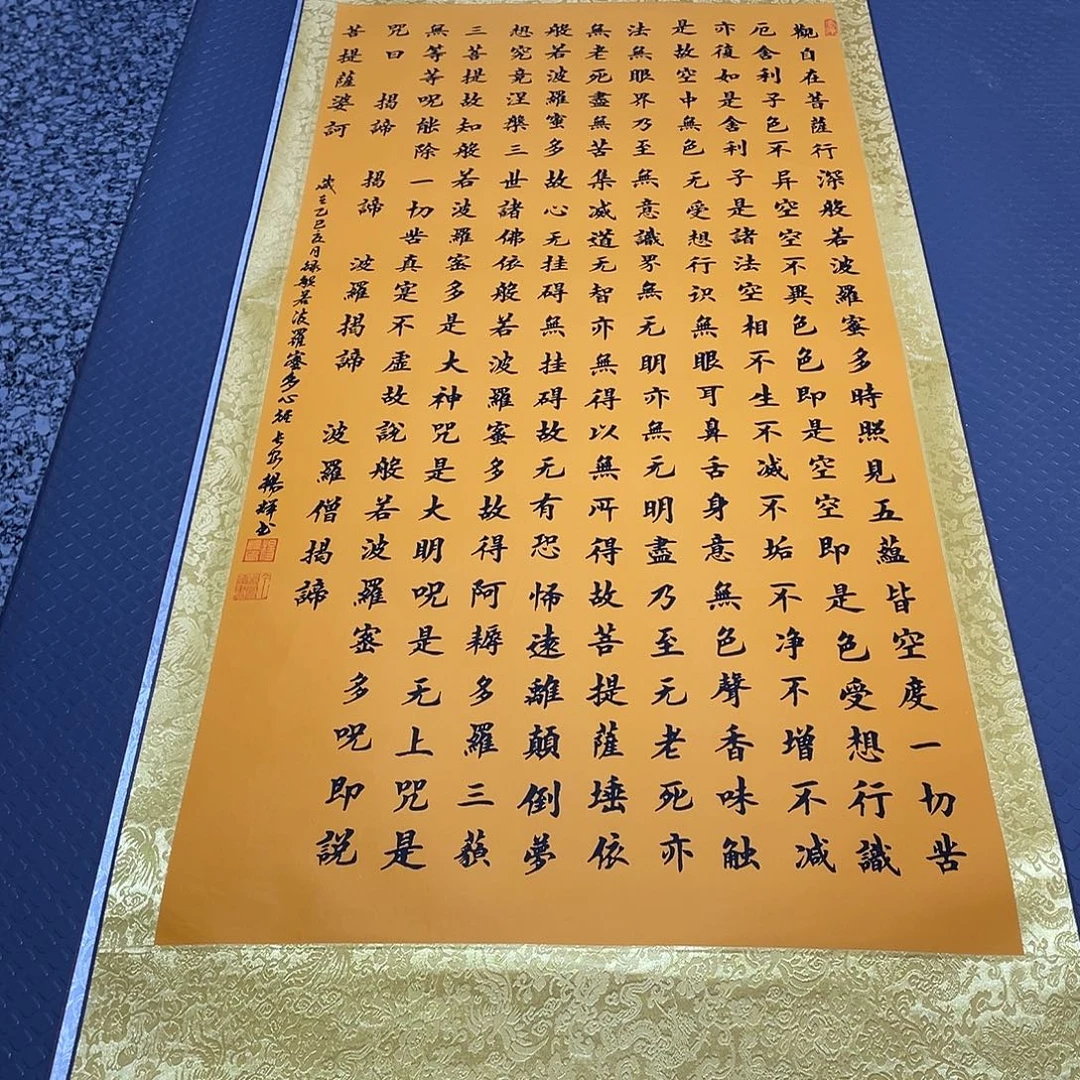 觀自在菩薩行深般若波羅蜜多時照見五蘊皆空度一切苦
厄舍利子色不异空空不異色色即是空空即是色受想行識
亦復如是舍利子是諸法空相不生不滅不垢不净不增不减
是故空中無色无受想行识無眼耳鼻舌身意無色聲香味触
法無眼界乃至無意識界無无明亦無无明盡乃至无老死亦
無老死盡無苦集滅道无智亦無得以無所得故菩提薩埵依
般若波羅蜜多故心无挂碍無挂碍故无有恐怖遠離顛倒夢
想究竟涅槃三世諸佛依般若波羅蜜多故得阿耨多羅三藐
三菩提故知般若波羅密多是大神咒是大明呪是无上咒是
無等等呪能除一切苦真寔不虛故說般若波羅密多呪即説
咒曰 揭諦 揭諦 波羅揭諦 波羅僧揭諦
菩提薩婆訶
乙巳 月録般若波羅蜜多心經